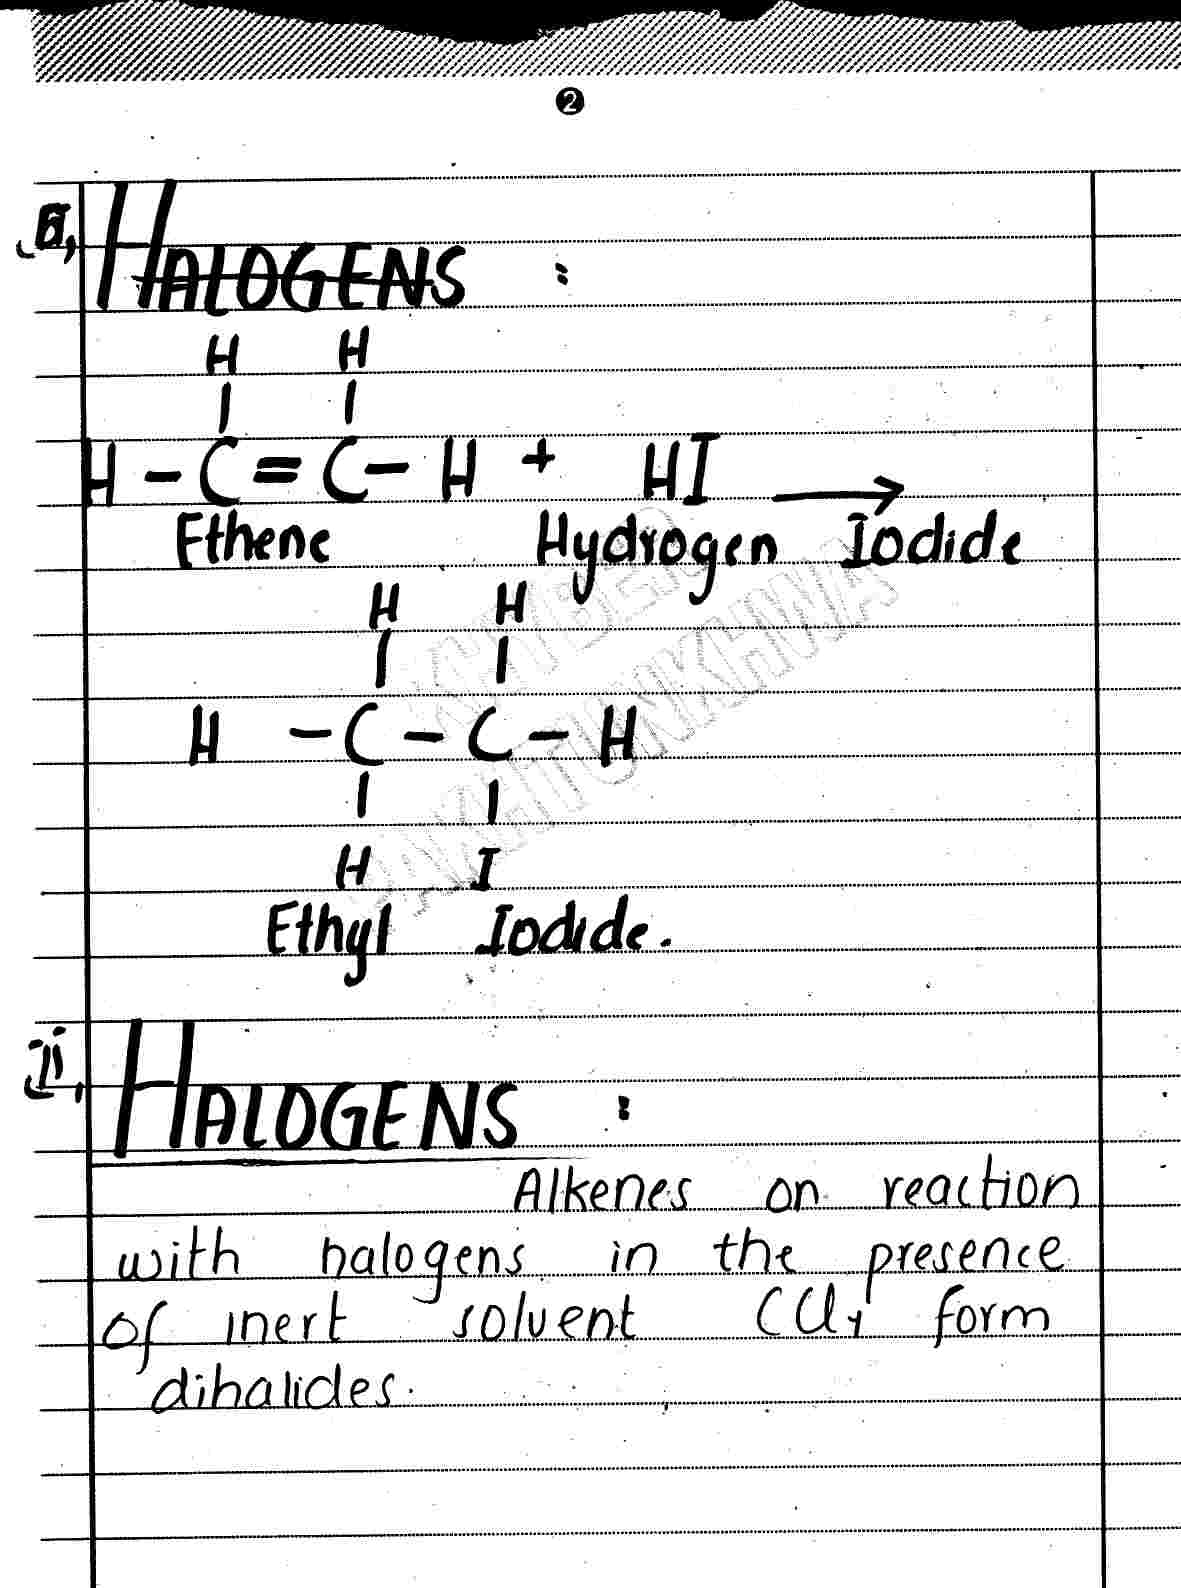 2
HALOGENS :
H H
| |
H - C = C - H + HI →
Ethene Hydrogen Iodide
H H
| |
H - C - C - H
| |
H I
Ethyl Iodide.
ii, HALOGENS :
Alkenes on reaction
with halogens in the presence
of inert solvent CCl4 form
dihalides.
KHYBER
PAKHTUNKHWA